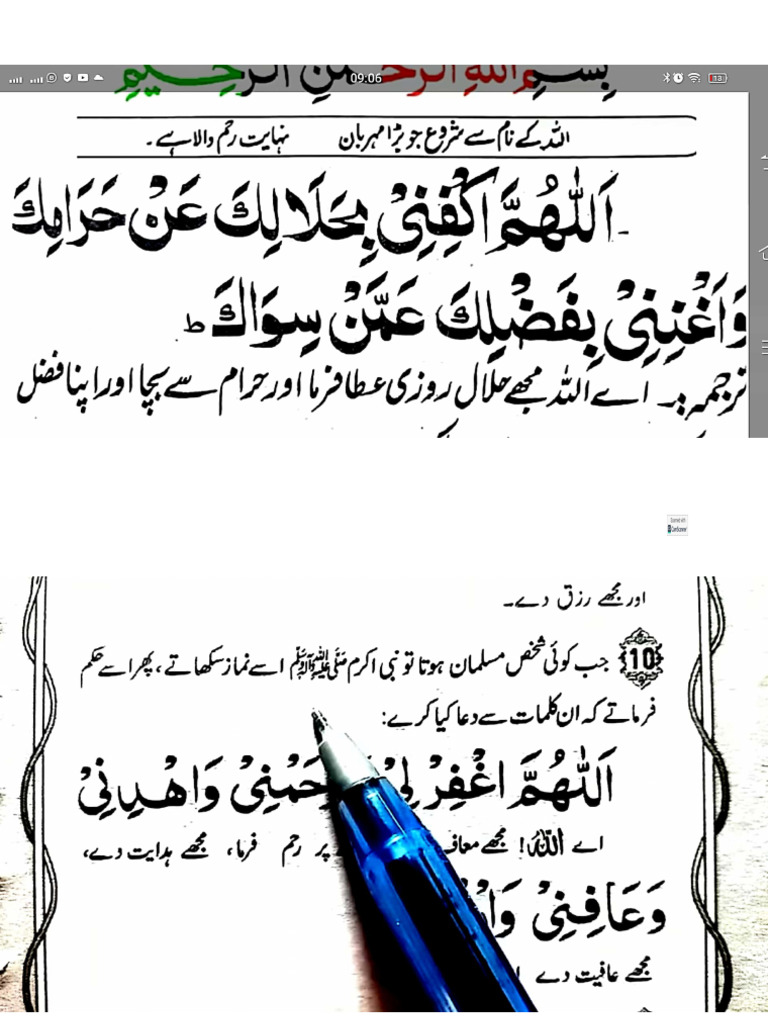 09:06
بِسْمِ اللهِ الرَّحْمٰنِ الرَّحِيْمِ
اللہ کے نام سے شروع جو بڑا مہربان نہایت رحم والا ہے۔
اَللّٰهُمَّ اكْفِنِيْ بِحَلَالِكَ عَنْ حَرَامِكَ
وَاَغْنِنِيْ بِفَضْلِكَ عَمَّنْ سِوَاكَ ط
ترجمہ:۔ اے اللہ مجھے حلال روزی عطا فرما اور حرام سے بچا اور اپنا فضل
اور مجھے رزق دے۔
10 جب کوئی شخص مسلمان ہوتا تو نبی اکرم ﷺ اسے نماز سکھاتے، پھر اسے حکم
فرماتے کہ ان کلمات سے دعا کیا کرے:
اَللّٰهُمَّ اغْفِرْ لِيْ وَاهْدِنِيْ
اے اللہ! مجھے پر رحم فرما، مجھے ہدایت دے،
وَعَافِنِيْ
مجھے عافیت دے